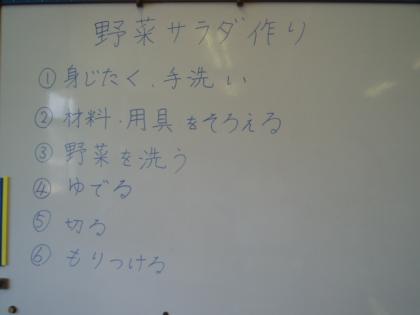 野菜サラダ作り
①身じたく、手洗い
②材料・用具をそろえる
③野菜を洗う
④ゆでる
⑤切る
⑥もりつける